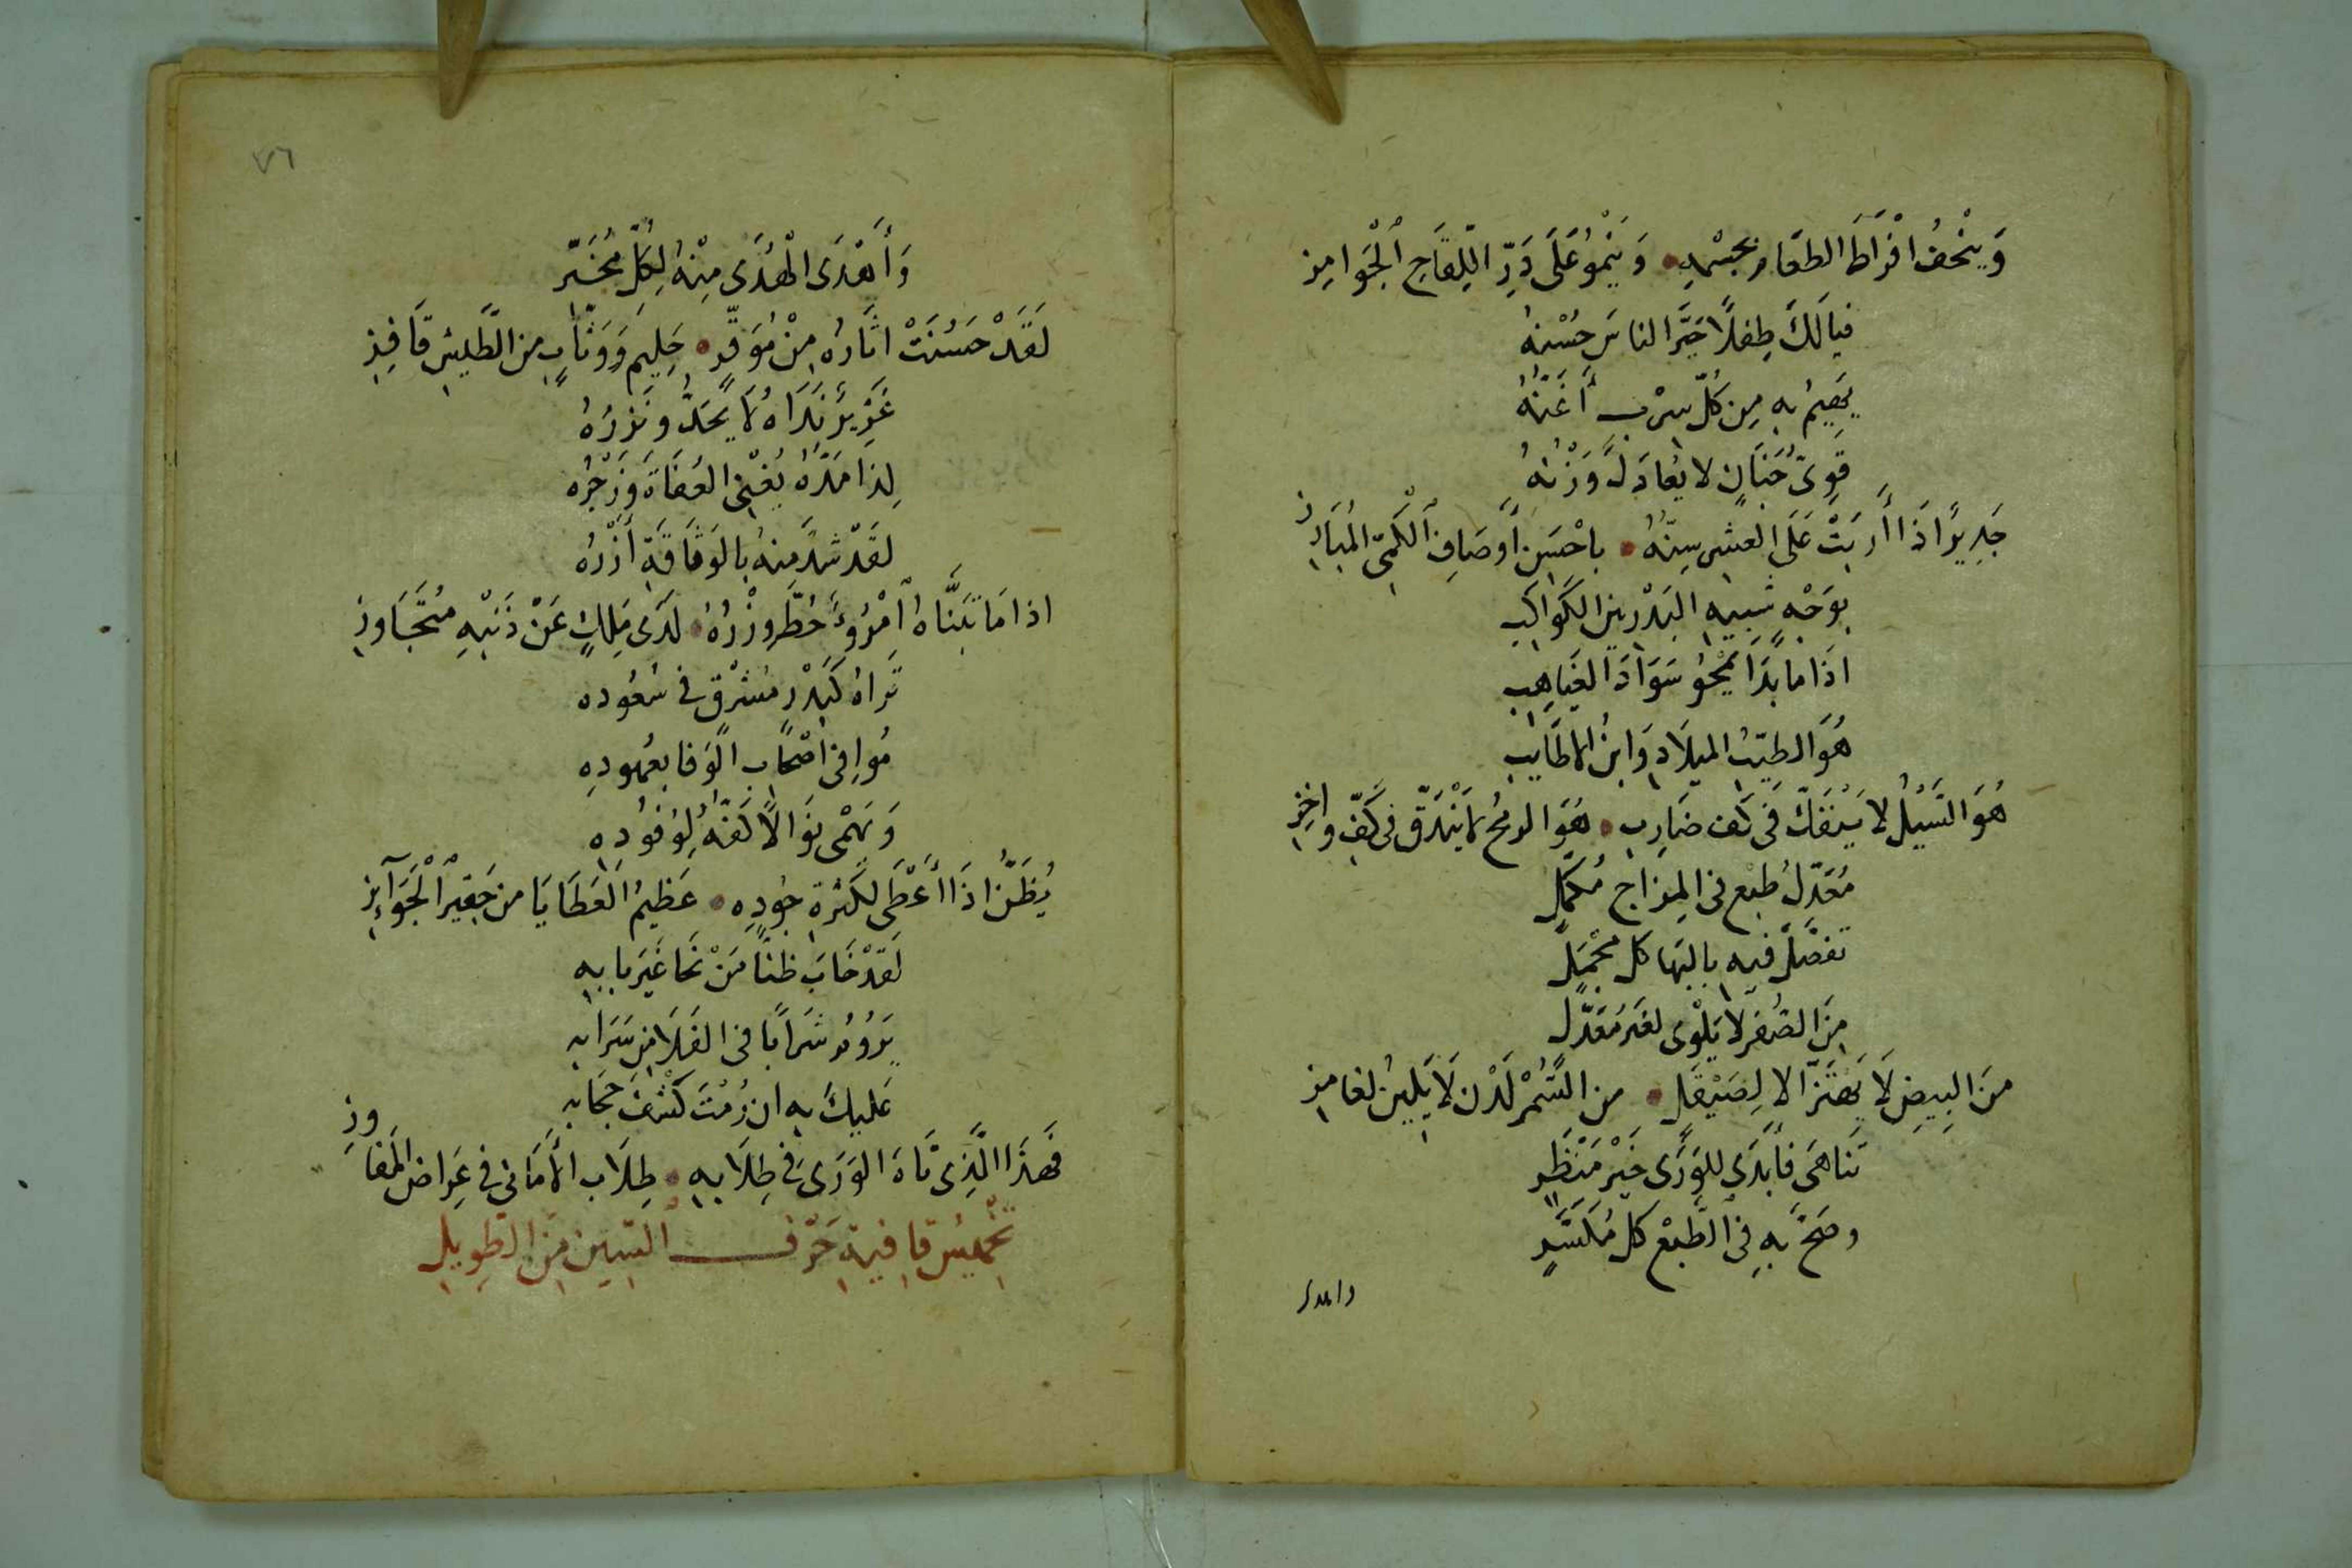 وَيَنْحَفُ افْرَاطُ الطعَامِ بجسْمِهِ • وَيَنْمُو عَلَى دَرِّ اللِّقَاحِ الْجَوَامِزِ
فيالَكَ طِفلًا حَيَّرَ الناسَ حُسْنهُ
يَهِيمُ بِهِ مِن كُلِّ سِرْبٍ أَغَنُّهُ
قَوِىُّ جَنَانٍ لا يُعَادَلُ وَزْنُهُ
جَدِيرًا اذَا أَرْبَتْ عَلَى العشرِ سِنّهُ • باحْسَنِ أَوصَافِ الْكَمِىّ المُبَارِزِ
بوَجْهٍ شَبيهِ البَدْرِ بين الكَوَاكبِ
اذَا مابَدَا يَمْحُو سَوَادَ الغَيَاهِبِ
هُوَ الطيّبُ الميلَادِ وَابنُ الاطَايبِ
هُوَ السَّيْلُ لا يَنْفَكّ فى كَف ضَارِبٍ • هُوَ الرمحُ لا يَنْدَقّ فى كَفّ واخِزِ
مُعَدّلُ طبْعٍ فى المِزَاجِ مُكمَّلِ
تفَضَّلَ فيهِ بالبَهَا كل مُجْمَلِ
مِنَ الصُفْرِ لا يَلْوِى لغَيرِ مُعَدّلِ
منَ البِيضِ لَا يَهتَزّ الا لِصَيْقَلِ • من السُّمْرِ لَدْن لَا يَلِينُ لغامِزِ
تَناهَى فأَبدَى للوَرَى خَيْرَ مَنْظَرِ
وصَحَّ بهِ فى الطَّبْعِ كل مُكَسَّرِ
واهدى
٧٦
وَأَهْدَى الْهُدَى مِنْهُ لِكُلِّ مُخَيَّرِ
لَقَدْ حَسُنَتْ اثَارُهُ مِنْ مُوَقَّرٍ • حَلِيمٍ وَوَثَّابٍ من الطَّيشِ قَافِزِ
غَزِيرُ نَدَاهُ لَا يُحَدُّ ونَزرُهُ
لِذَا مَدّهُ يُغْنِى العُفَاةَ وَزَجْرُه
لقَدْ شدَّ منهُ بالوَثَاقَةِ أزْرُه
اذا مَا تَبَنَّاهُ امْرُؤٌ حُطَّ وِزْرُهُ • لَدَى مَلِكٍ عَنْ ذَنْبِهِ مُتَجَاوِزِ
تَراهُ كَبَدْرٍ مُشْرِقٍ فى سُعُودِه
مُوافى اصْحَابِ الوَفا بعُهودِهِ
وَيَهْمى نوَالًا كَفّهُ لِوُفُودِهِ
يُظَنّ اذَا أَعْطَى لكَثْرَةِ جُودِهِ • عَظِيمُ العَطَايَا من حَقِيرِ الْجَوَآئِزِ
لَقَدْ خَابَ ظنًّا مَنْ نَحَا غَيرَ بابِهِ
يَرُومُ شَرابًا فى الفَلَا مِن سَرَابِهِ
عَليكَ بِهِ ان رُمْتَ كَشْفَ حِجَابِه
فَهَذَا الَّذِى تَاهَ الوَرَى فى طِلَابِهِ • طِلَابِ الأَمَانى فى عِراضِ المَفَاوِزِ
تخميسُ قافيةِ حَرْف السّين مِنَ الطَّوِيلِ